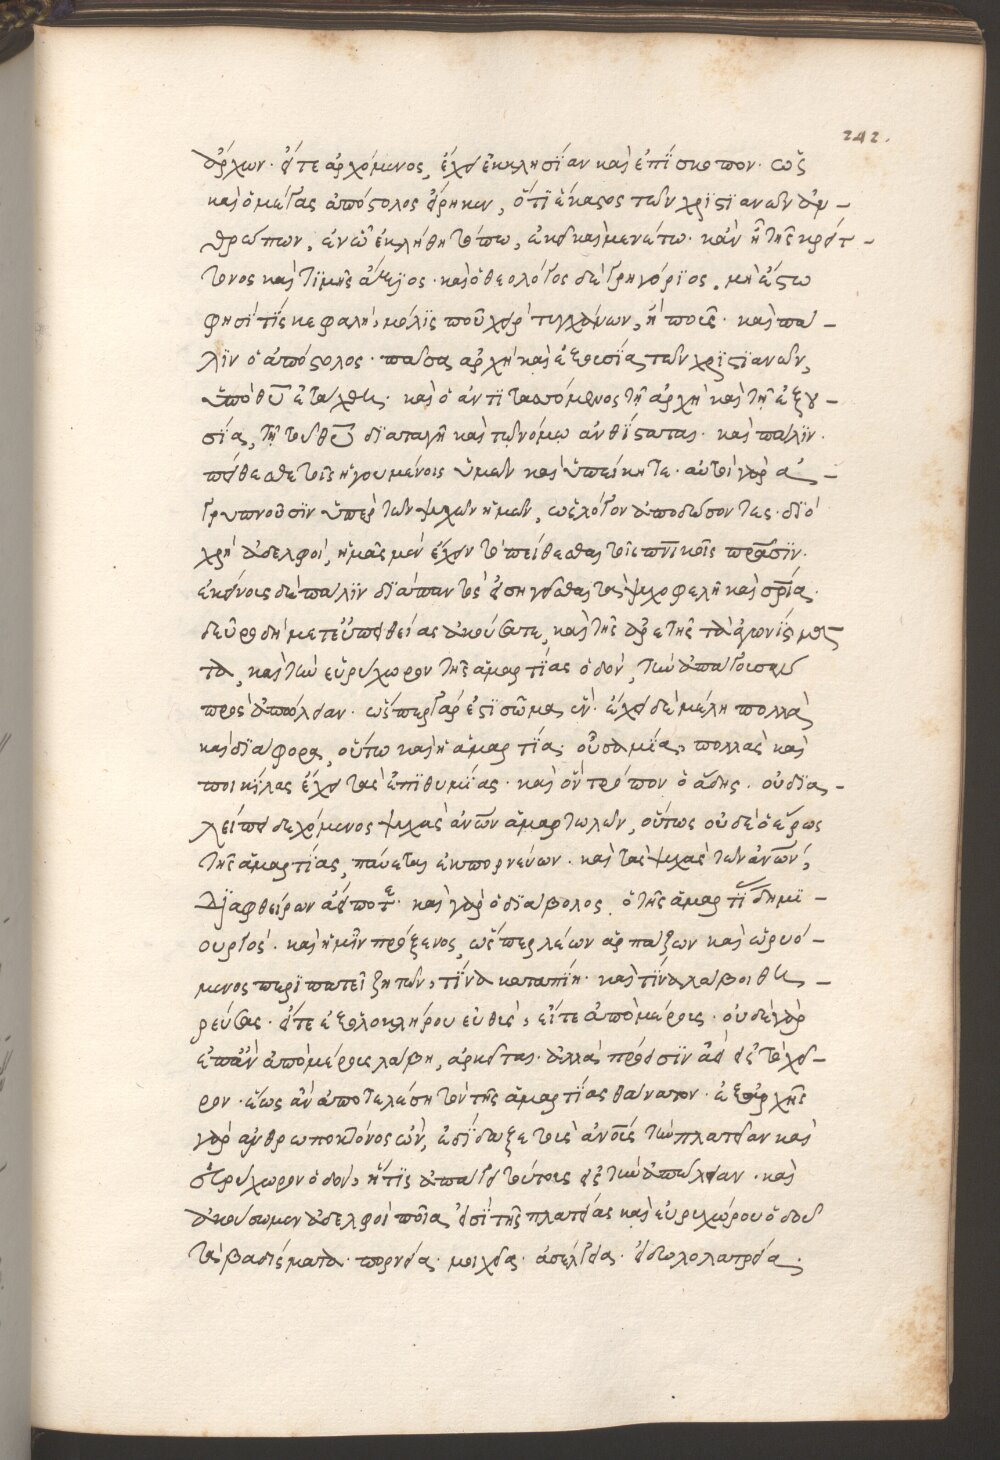 242.
ἄρχων· εἴτε ἀρχόμενος, ἔχει ἐκκλησΐαν καὶ ἐπΐσκοπον· ὡς
καὶ ὁ μέγας ἀπόστολος εἴρηκεν, ὅτϊ ἕκαστος τῶν χρϊστϊανῶν ἀν–
θρώπων, ἐν ᾧ ἐκλήθη τόπω, ἐκεῖ καὶ μενέτω· κἂν ᾖ τῆς κρείτ–
τονος καὶ τϊμῆς ἄξϊος· καὶ ὁ θεολόγος δὲ γρηγόρϊος, μὴ ἔστω
φησί τΐς κεφαλὴ, μόλϊς ποῦ χεὶρ τυγχάνων, ἢ ποῦς· καὶ πά–
λϊν ὁ ἀπόστολος· πᾶσα ἀρχὴ καὶ ἐξουσΐα τῶν χρϊστϊανῶν,
ὑπὸ θῦ ἐτάχθη· καὶ ὁ ἀντϊτασσόμενος τῆ ἀρχῆ καὶ τῆ ἐξου–
σΐα, τῆ τοῦ θῦ δϊαταγῆ καὶ τῶ νόμω ἀνθΐσταται· καὶ πάλϊν·
πείθεσθε τοῖς ἡγουμένοις ὑμῶν καὶ ὑπείκητε· αὐτοὶ γὰρ ἀ–
γρυπνοῦσϊν ὑπὲρ τῶν ψυχῶν ἡμῶν, ὡς λόγον ἀποδώσοντες· δϊὸ
χρὴ ἀδελφοὶ, ἡμᾶς μὲν ἔχειν τὸ πείθεσθαι τοῖς πνϊκοῖς πρᾶσϊν·
ἐκείνοις δὲ πάλϊν δϊαπαντὸς εἰσηγεῖσθαι τὰ ψυχοφελῆ καὶ σρΐα·
δεῦρο δὴ μετ' εὐπειθείας ἀκούσατε, καὶ τῆς ἀρετῆς τὰ ἀγωνΐσμα
τα, καὶ τὴν εὐρύχωρον τῆς ἁμαρτΐας ὁδὸν, τὴν ἀπάγουσαν
πρὸς ἀπώλειαν· ὥσπερ γάρ ἐστϊ σῶμα ἕν· ἔχει δὲ μέλη πολλὰ
καὶ δϊάφορα, οὕτω καὶ ἡ ἁμαρτΐα· οὖσα μΐα, πολλὰς καὶ
ποικΐλας ἔχει τὰς ἐπϊθυμΐας· καὶ ὃν τρόπον ὁ ἅδης· οὐ δϊα–
λείπει δεχόμενος ψυχὰς ἀνῶν ἁμαρτωλῶν, οὕτως οὐδὲ ὁ ἔρως
τῆς ἁμαρτΐας, παύεται ἐκπορνεύων· καὶ τὰς ψυχὰς τῶν ἀνῶν,
δϊαφθείρων ἀείποτε· καὶ γὰρ ὁ δϊάβολος, ὁ τῆς ἁμαρτΐας δημϊ–
ουργὸς· καὶ ἡμῖν πρόξενος, ὥσπερ λέων ἁρπάζων καὶ ὠρυό–
μενος περϊπατεῖ ζητῶν, τΐνα καταπΐη· καὶ τΐνα λάβοι θη–
ρεύσας· εἴτε ἐξολοκλήρου εὐθὺς, εἴτε ἀπὸ μέρους· οὐδὲ γὰρ
ἐπὰν ἀπὸ μέρους λάβη, ἀρκεῖται· ἀλλὰ πρόεισϊν ἀεὶ εἰς τὸ χεῖ–
ρον· ἕως ἂν ἀποτελέση τὸν τῆς ἁμαρτΐας θάνατον· ἐξ ἀρχῆς
γὰρ ἀνθρωποκτόνος ὢν, ἐδΐδαξε τοὺς ἀνοῖς τὴν πλατεῖαν καὶ
εὐρύχωρον ὁδὸν, ἥτϊς ἀπάγει τούτους εἰς τὴν ἀπώλειαν· καὶ
ἀκούσωμεν ἀδελφοὶ ποῖα εἰσΐ τῆς πλατείας καὶ εὐρυχώρου ὁδοῦ
τὰ βαδΐσματα· πορνεία· μοιχεία· ἀσέλγεια· εἰδωλολατρεία·